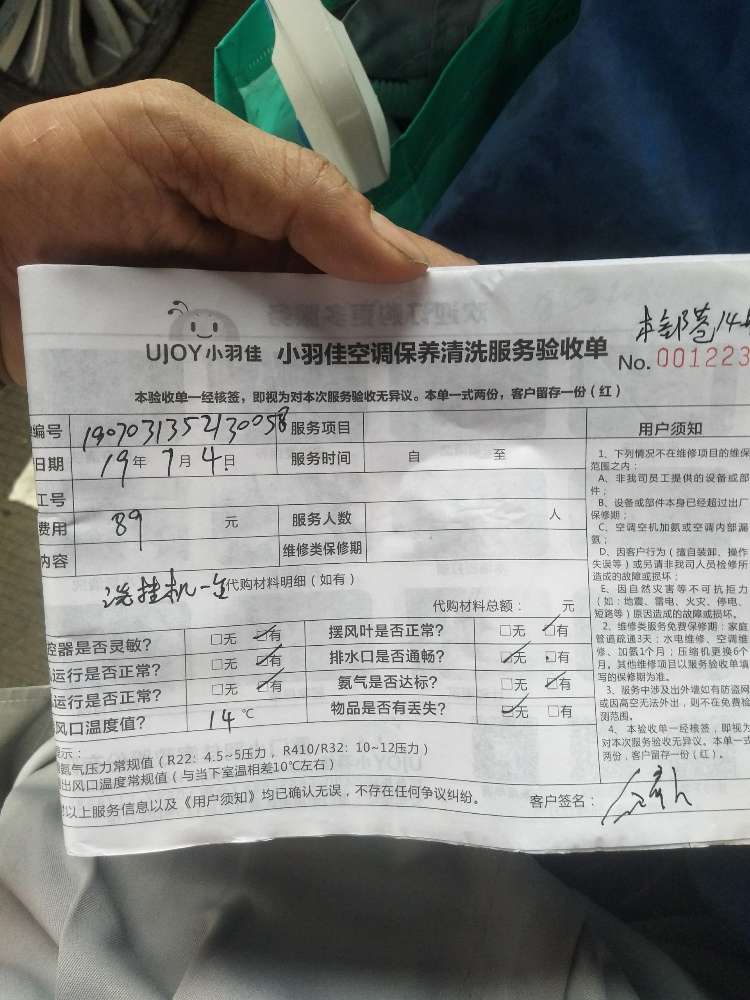 UJOY小羽佳 小羽佳空调保养清洗服务验收单
No. 001223
本验收单一经核签，即视为对本次服务验收无异议。本单一式两份，客户留存一份（红）
编号 190703135213005 服务项目
日期 19年 7月 4日 服务时间 自 至
工号
费用 89 元 服务人数 人
内容 维修类保修期
洗挂机一台
代购材料明细（如有）
代购材料总额： 元
控器是否灵敏？ □无 ☑有 摆风叶是否正常？ □无 ☑有
运行是否正常？ □无 ☑有 排水口是否通畅？ ☑无 □有
运行是否正常？ □无 ☑有 氨气是否达标？ □无 ☑有
风口温度值？ 14 ℃ 物品是否有丢失？ ☑无 □有
示：
氨气压力常规值（R22：4.5~5压力，R410/R32：10~12压力）
出风口温度常规值（与当下室温相差10℃左右）
以上服务信息以及《用户须知》均已确认无误，不存在任何争议纠纷。
客户签名：
用户须知
1、下列情况不在维修项目的维保
范围之内：
A、非我司员工提供的设备或部
件；
B、设备或部件本身已经超过出厂
保修期；
C、空调空机加氨或空调内部漏
氨；
D、因客户行为（擅自装卸、操作
失误等）或另请非我司人员检修所
造成的故障或损坏；
E、因自然灾害等不可抗拒力
（如：地震、雷电、火灾、停电、
短路等）原因造成的故障或损坏。
2、维修类服务免费保修期：家庭
管道疏通3天；水电维修、空调维
修、加氨1个月；压缩机更换6个
月。其他维修项目以服务验收单填
写的保修期为准。
3、服务中涉及出外墙如有防盗网
或因高空无法外出，则不在免费检
测范围。
4、本验收单一经核签，即视为
对本次服务验收无异议。本单一式
两份，客户留存一份（红）。